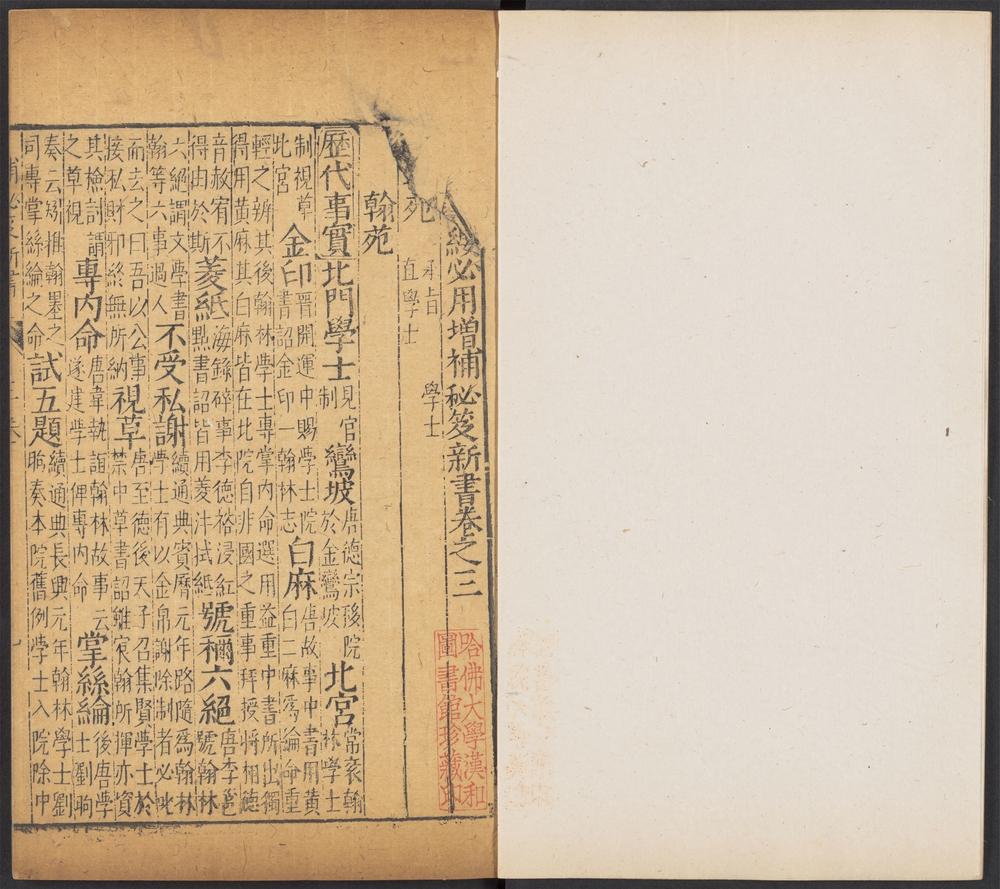 綬必用增補秘笈新書卷之三
苑 承旨 學士
直學士
翰苑
歷代事實 北門學士 見官制 鸞坡 唐德宗移院於金鸞坡 北宮 常袞翰林學士
制視草北宮 金印 晋開運中賜學士院書詔金印一翰林志 白麻 唐故事中書用黃白二麻爲綸命重
輕之辨其後翰林學士專掌內命選用益重中書所出獨
得用黃麻其白麻皆在北院自非國之重事拜授將相德
音赦宥不得由於斯 菱紙 海錄碎事李德裕浸紅點書詔皆用菱汁拭紙 號稱六絕 唐李邕號翰林
六絕謂文學書翰等六事過人 不受私謝 續通典寶曆元年路隨爲翰林學士有以金帛謝除制者必叱
而去之曰吾以公事接私財邪終無所納 視草 唐至德後天子召集賢學士於禁中草書詔雖宸翰所揮亦資
其檢討謂之草視 專內命 唐韋執誼翰林故事云遂建學士俾專內命 掌絲綸 後唐學士劉昫
奏云矧推翰墨之同專掌絲綸之命 試五題 續通典長興元年翰林學士劉昫奏本院舊例學士入院除中
哈佛大學漢和
圖書館珍藏印